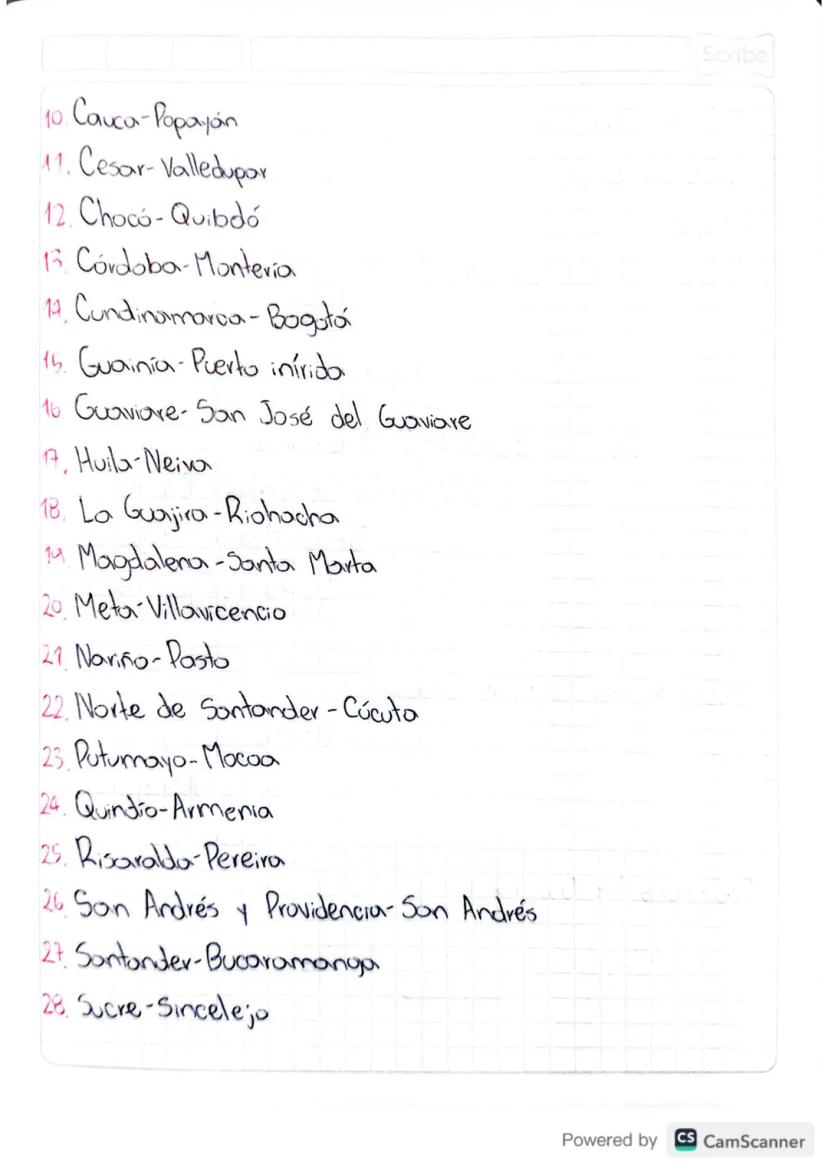 Scribe
10. Cauca-Popayán
11. Cesar-Valledupar
12. Chocó-Quibdó
13. Córdoba-Montería
14. Cundinamarca-Bogotá
15. Guainía-Puerto inírida
16 Guaviare-San José del Guaviare
17. Huila-Neiva
18. La Guajira-Riohacha
19. Magdalena-Santa Marta
20. Meta-Villavicencio
21. Nariño-Pasto
22. Norte de Santander-Cúcuta
23. Putumayo-Mocoa
24. Quindío-Armenia
25. Risaralda-Pereira
26 San Andrés y Providencia-San Andrés
27. Santander-Bucaramanga
28. Sucre-Sincelejo
Powered by CS CamScanner